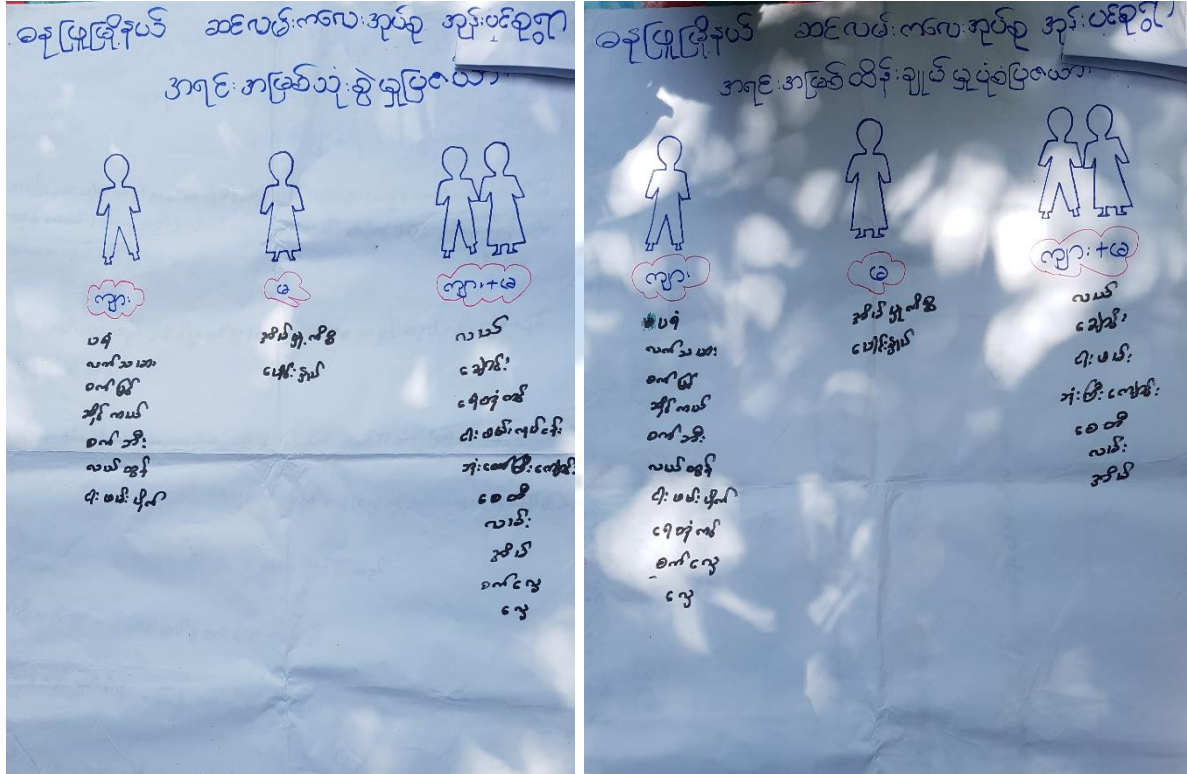 ဓနုဖြူမြို့နယ် ဆင်လမ်းကလေးအုပ်စု အုန်းပင်စုရွာ
အရင်းအမြစ်သုံးစွဲမှုပြဇယား
ကျား
မ
ကျား+မ
ပရဲ
လက်သမား
စက်မြှုပ်
ဆိုင်ကယ်
စက်ဘီး
လယ်ထွန်
ငါးဖမ်းပိုက်
အိမ်မှုကိစ္စ
ပေါင်းနှုတ်
လယ်
ချောင်း
ရေတုံကင်
ငါးဖမ်းလုပ်ငန်း
ဘုံးတော်ကြီးကျောင်း
စေတီ
လမ်း
အိမ်
စက်လှေ
လှေ
ဓနုဖြူမြို့နယ် ဆင်လမ်းကလေးအုပ်စု အုန်းပင်စုရွာ
အရင်းအမြစ်ထိန်းချုပ်မှုပုံစံပြဇယား
ကျား
မ
ကျား+မ
ပရဲ
လက်သမား
စက်မြှုပ်
ဆိုင်ကယ်
စက်ဘီး
လယ်ထွန်
ငါးဖမ်းပိုက်
ရေတုံကင်
စက်လှေ
လှေ
အိမ်မှုကိစ္စ
ပေါင်းနှုတ်
လယ်
ချောင်း
ငါးဖမ်း
ဘုံးကြီးကျောင်း
စေတီ
လမ်း
အိမ်